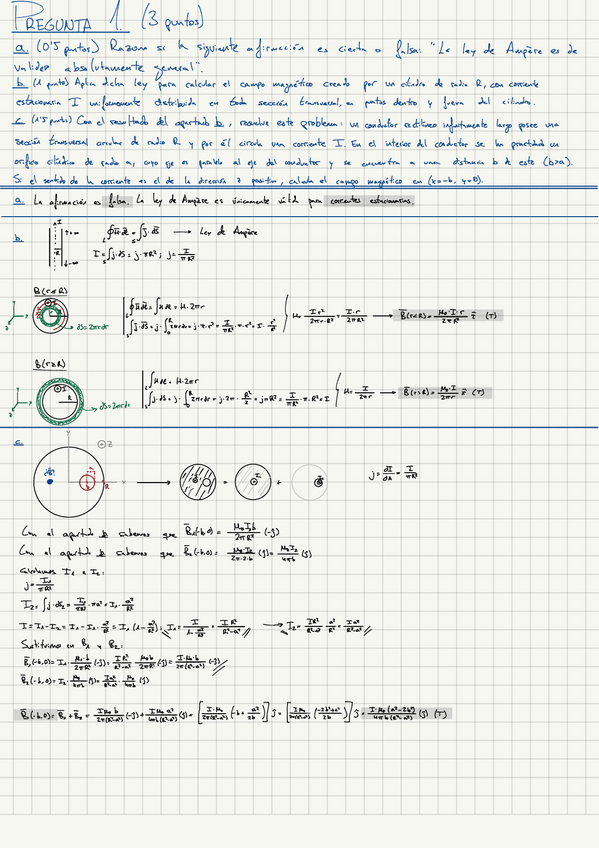 PREGUNTA 1. (3 puntos)
a. (0'5 puntos) Razona si la siguiente afirmación es cierta o falsa: "La ley de Ampère es de
validez absolutamente general".
b. (1 punto) Aplica dicha ley para calcular el campo magnético creado por un cilindro de radio R, con corriente
estacionaria I uniformemente distribuida en toda sección transversal, en puntos dentro y fuera del cilindro.
c. (1'5 puntos) Con el resultado del apartado b, resuelve este problema: un conductor rectilíneo infinitamente largo posee una
sección transversal circular de radio R y por él circula una corriente I. En el interior del conductor se ha practicado un
orificio cilíndrico de radio a, cuyo eje es paralelo al eje del conductor y se encuentra a una distancia b de este (b>a).
Si el sentido de la corriente es el de la dirección z positiva, calcula el campo magnético en (x=-b, y=0).
a. La afirmación es falsa. La ley de Ampère es únicamente válida para corrientes estacionarias.
b.
∮H·dl = ∫J·dS → Ley de Ampère
I = ∫J·dS = j·πR²; j = I/πR²
B(r≤R)
dS = 2πrdr
∮H·dl = ∫H dl = H·2πr
B(r≥R)
dS = 2πrdr
∫H·dl = H·2πr
c.
j = dI/dA = I/πR²
Con el apartado b sabemos que B₁(-b,0) = μ₀I₁b/2πR² (-j)
Con el apartado b sabemos que B₂(-b,0) = μ₀·I₂/2π·2·b (j) = μ₀I₂/4πb (j)
Calculamos I₁ e I₂:
j = I₁/πR²
I₂ = ∫j·dS₂ = I₁/πR²·πa² = I₁·a²/R²
I = I₁-I₂ = I₁-I₁·a²/R² = I₁(1-a²/R²); I₁ = I/(1-a²/R²) = IR²/(R²-a²) → I₂ = IR²/(R²-a²)·a²/R² = Ia²/(R²-a²)
Sustituimos en B₁ y B₂:
B₁(-b,0) = I₁·μ₀·b/2πR² (-j) = IR²/(R²-a²)·μ₀b/2πR² (-j) = I·μ₀·b/2π(R²-a²) (-j)
B₂(-b,0) = I₂·μ₀/4πb (j) = Ia²/(R²-a²)·μ₀/4πb (j)
B(-b,0) = B₁+B₂ = Iμ₀b/2π(R²-a²) (-j) + Iμ₀a²/4πb(R²-a²) (j) = [I·μ₀/2π(R²-a²) (-b+a²/2b)] j = [Iμ₀/2π(R²-a²) (-2b²+a²/2b)] j = I·μ₀(a²-2b²)/4πb(R²-a²) (j) (T)